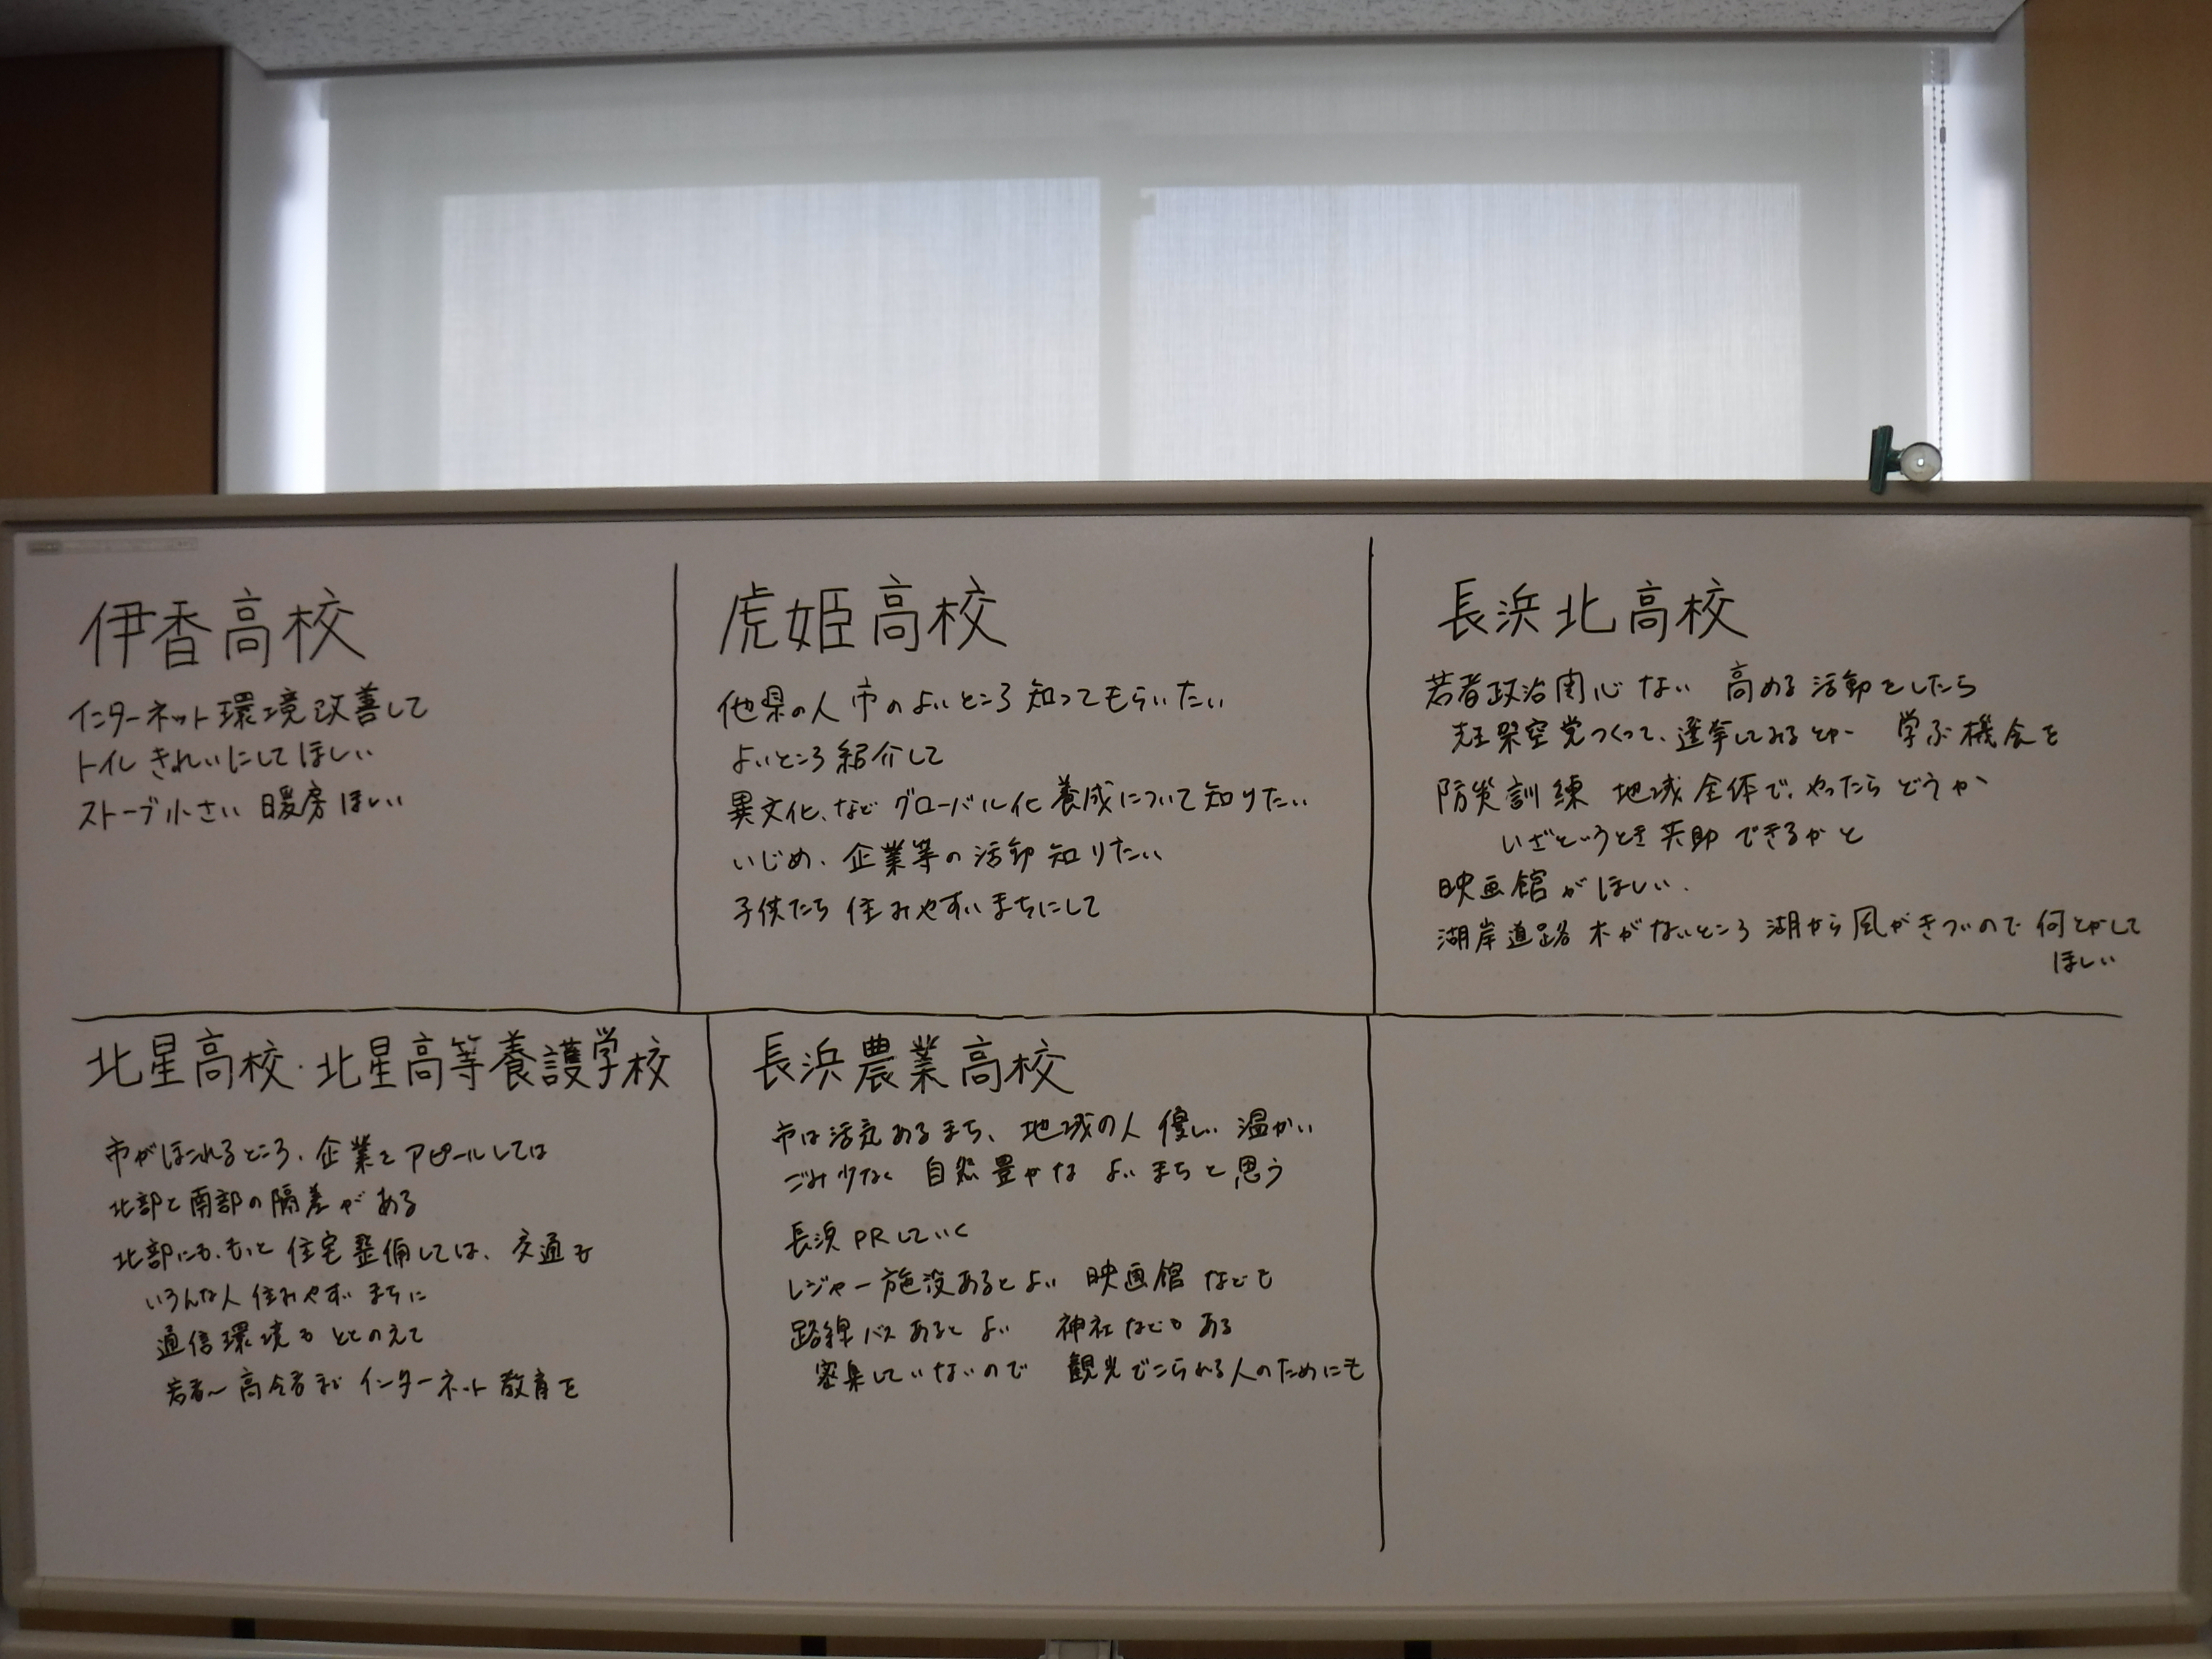 伊香高校
インターネット環境改善して
トイレきれいにしてほしい
ストーブ小さい 暖房ほしい
虎姫高校
他県の人 市のよいところ知ってもらいたい
よいところ紹介して
異文化、など グローバル化 養成について知りたい
いじめ、企業等の活動知りたい
子供たち 住みやすいまちにして
長浜北高校
若者政治関心ない 高める活動をしたら
架空党つくって、選挙してみるとか 学ぶ機会を
防災訓練 地域全体で、やったらどうか
いざというとき共助できるかと
映画館がほしい.
湖岸道路 木がないところ 湖から風がきついので 何とかして
ほしい
北星高校・北星高等養護学校
市がほこれるところ、企業をアピールしては
北部と南部の隔差がある
北部にも、もっと住宅整備しては、交通も
いろんな人住みやすいまちに
通信環境もととのえて
若者～高令者まで インターネット教育を
長浜農業高校
市は活気あるまち、地域の人 優しい 温かい
ごみ少なく 自然豊かな よいまちと思う
長浜PRしていく
レジャー施設あるとよい 映画館なども
路線バスあるとよい 神社などもある
密集していないので 観光でこられる人のためにも